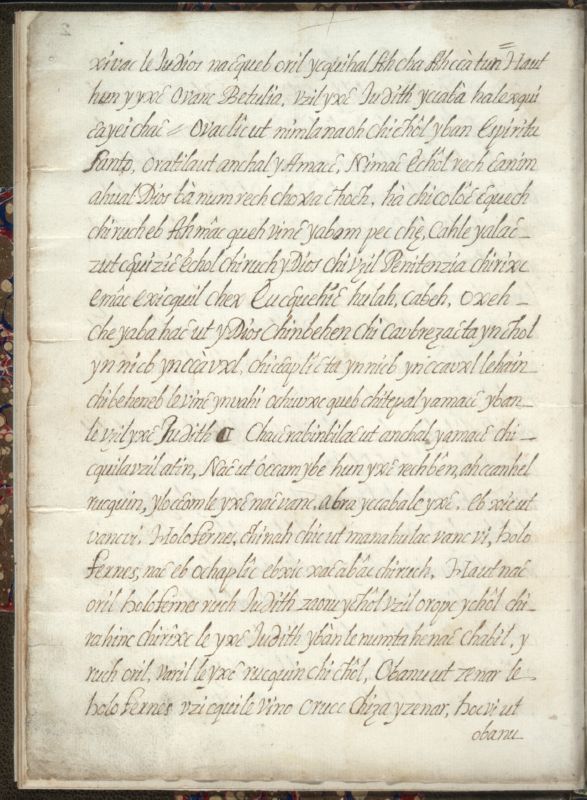 xivac le Judios naēqueb oril ycquihal Ah cha Ah ccà tun = Haut
hun y yxē Ovanc Betulia, vzil yxē Judith yccabà halexqui
cayei chaē = Ovaclic ut nimla naoh chi chôl yban Espiritu
Santo, ovatilaut anchal y Amacē, Nimac ēchôl rech canim
ahual Dios tà num rech choxac choch, hà chi colôē ēquech
chiruch eb Ah mâc queh vinē yabam pec chè, Cahle yalaē_
zut cquizic ēchol chiruch y Dios chi vzil Penitenzia chirixc
emâc exicquil chex Eu cquethiē hulah, cabeh, oxeh_
che yaba haē ut y Dios Chinbehen chi Caubrezaēta yn chol
yn nicb ynccàvxl, chi cēaplicta yn nicb ynccavxl lehain_
chibeheneb le vinē ynvahi ochuvxc queb chitepal yamacē yban_
le vzil yxē Judith Chaēcrabinbilaē ut anchal yamacē chi_
cquilavzil atin, Naē ut occam ybe hun yxē rech bên, ah ccanhel
rucquin, y locēom le yxē naē vanc, abra yccabalc yxē. eb xic ut
vancvi. Holofernes, chinah chic ut mana hulac vanc vi, holo
fernes, naē eb ochaplîc ebxic xaē abâc chiruch. Haut naē
oril holofernes ruch Judith zaou ychôl vzil oropc ychôl chi_
rahinc chirîxc le yxē Judith ybàn le numta henaē chabîl. y
ruch oril, varil le yxē rucquin chi chôl, Obanu ut zenar le_
holofernes vzi cquilc vino crucc chiza y zenar, hoevi ut
obanu